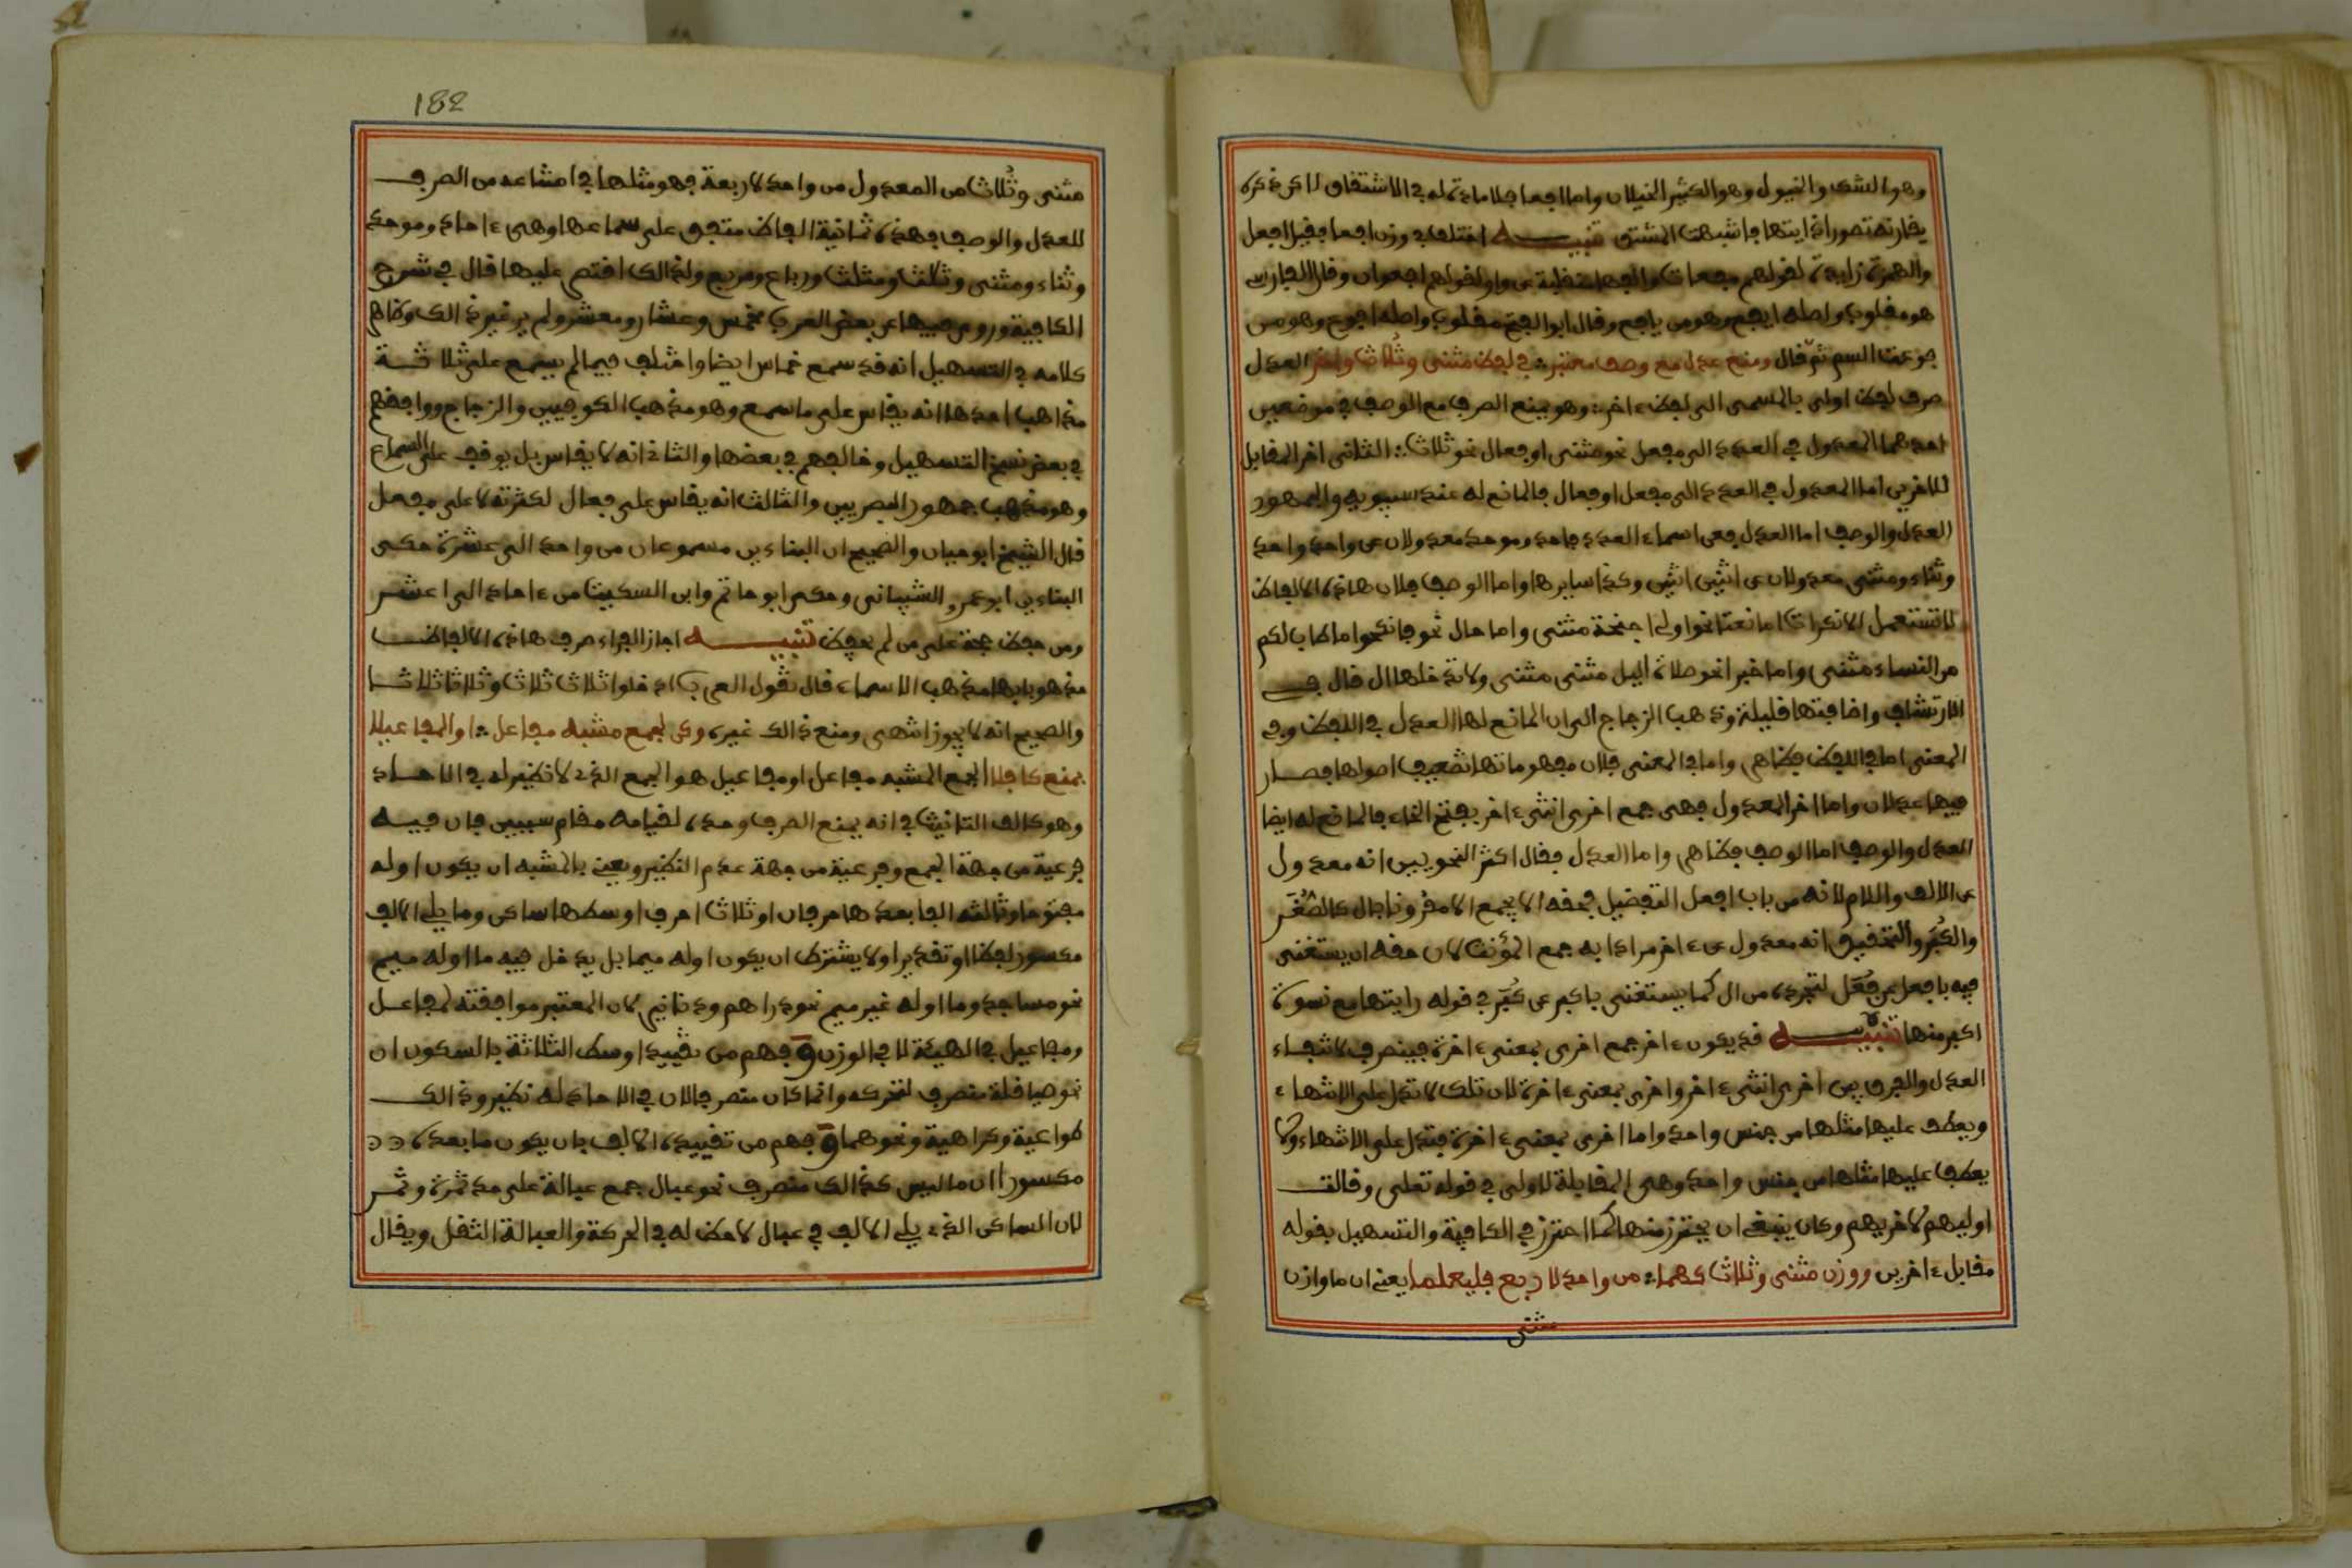 وهو الشك والخيول وهو الكثير الخيلان واما افعى فلا مادة له في الاشتقاق لاكن ذكره
يقارنه تصور اذايتها فاشبهت المشتق تنبيه اختلف في وزن افعى فقيل افعل
والهمزة زايدة لقولهم مفعاة عن واو لقولهم افعوان وقال الفارسي
هو مقلوب واصله ايفع وهو من يافع وقال ابو الفتح مقلوب واصله افوع وهو من
فوعة السم ثم قال ومنع عدل مع وصف معتبر في لفظ مثنى وثلاث واخر العدل
صرف لفظ اولى بالمسمى الى لفظ ءاخر وهو يمنع الصرف مع الوصف في موضعين
احدهما المعدول في العدد الى مفعل نحو مثنى او فعال نحو ثلاث الثانى اخر المقابل
للاخرين اما المعدول في العدد الى مفعل او فعال فالمانع له عند سيبويه والجمهور
العدل والوصف اما العدل ففى اسماء العدد فاحاد وموحد معدولان عن واحد واحد
وثناء ومثنى معدولان عن اثنين اثنين وكذا سايرها واما الوصف فلان هاذه الالفاظ
لا تستعمل الا نكرات اما نعتا نحو اولى اجنحة مثنى واما حال نحو فانكحوا ما طاب لكم
من النساء مثنى واما خبرا نحو صلاة اليل مثنى مثنى ولا تدخلها ال قال في
الارتشاف واضافتها قليلة وذهب الزجاج الى ان المانع لها العدل في اللفظ وفي
المعنى اما في اللفظ فظاهر واما في المعنى فلان مفهوماتها تضعيف اصولها فصار
فيها عدلان واما اخر المعدول فهى جمع اخرى انثى ءاخر بفتح الخاء فالمانع له ايضا
العدل والوصف اما الوصف فظاهر واما العدل فقال اكثر النحويين انه معدول
عن الالف واللام لانه من باب افعل التفضيل فحقه الا يجمع الا مقرونا بال كالصغر
والكبر والتحقيق انه معدول عن ءاخر مرادا به جمع المؤنث لان حقه ان يستغنى
فيه بافعل عن فعل لتجرده من ال كما يستغنى باكبر عن كبر في قوله رايتها مع نسوة
اكبر منها تنبيه قد يكون ءاخر جمع اخرى بمعنى ءاخرة فينصرف لانتفاء
العدل والفرق بين اخرى انثى ءاخر واخرى بمعنى ءاخرة لان تلك لا تدل على الانتهاء
ويعطف عليها مثلها من جنس واحد واما اخرى بمعنى ءاخرة فتدل على الانتهاء ولا
يعطف عليها مثلها من جنس واحد وهى المقابلة لاولى في قوله تعلى وقالت
اوليهم لاخريهم وكان ينبغى ان يحترز منها كما احترز في الكافية والتسهيل بقوله
مقابل ءاخرين ووزن مثنى وثلاث كهما من واحد لاربع فليعلما يعنى ان ما وازن
مثنى
182
مثنى وثلاث من المعدول من واحد لاربعة فهو مثلها في امتناعه من الصرف
للعدل والوصف فهذه ثمانية الفاظ متفق على سماعها وهى ءاحاد وموحد
وثناء ومثنى وثلاث ومثلث ورباع ومربع ولذالك اقتصر عليها قال في شرح
الكافية وروى فيها عن بعض العرب مخمس وعشار ومعشر ولم يرد غير ذالك وظاهر
كلامه في التسهيل انه قد سمع خماس ايضا واختلف فيما لم يسمع على ثلاثة
مذاهب احدها انه يقاس على ما سمع وهو مذهب الكوفيين والزجاج ووافقهم
في بعض نسخ التسهيل وخالفهم في بعضها والثانى انه لا يقاس بل يوقف على السماع
وهو مذهب جمهور البصريين والثالث انه يقاس على فعال لكثرته لا على مفعل
قال الشيخ ابو حيان والصحيح ان البناءين مسموعان من واحد الى عشرة حكى
البناءين ابو عمرو الشيبانى وحكى ابو حاتم وابن السكيت من ءاحاد الى اعشر
ومن حفظ حجة على من لم يحفظ تنبيه اجاز الفراء صرف هاذه الالفاظ
مذهوبا بها مذهب الاسماء قال تقول العرب ادخلوا ثلاث ثلاث وثلاثا ثلاثا
والصحيح انه لا يجوز انتهى ومنع ذالك غيره وكن لجمع مشبه مفاعلا او المفاعيلا
بمنع كافلا الجمع المشبه مفاعل او مفاعيل هو الجمع الذى لا نظير له في الاحاد
وهو كالف التانيث في انه يمنع الصرف وحده لقيامه مقام سببين فان فيه
فرعية من جهة الجمع وفرعية من جهة عدم النظير ويعنى بالمشبه ان يكون اوله
مفتوحا وثالثه الفا بعدها حرفان او ثلاثة احرف اوسطها ساكن وما يلى الالف
مكسور لفظا او تقديرا ولا يشترط ان يكون اوله ميما بل يدخل فيه ما اوله ميم
نحو مساجد وما اوله غير ميم نحو دراهم ودنانير لان المعتبر موافقته لمفاعل
ومفاعيل في الهيئة لا في الوزن وفهم من تقييد اوسط الثلاثة بالسكون ان
نحو صياقلة منصرف لتحركه وانما كان منصرفا لان في الاحاد له نظير وذالك
طواعية وكراهية ونحوهما وفهم من تقييده الالف بان يكون ما بعده
مكسورا ان ما ليس كذالك منصرف نحو عبال جمع عبالة على حد ثمرة وثمر
لان الساكن الذى يلى الالف في عبال لا حظ له في الحركة والعبالة الثقل ويقال